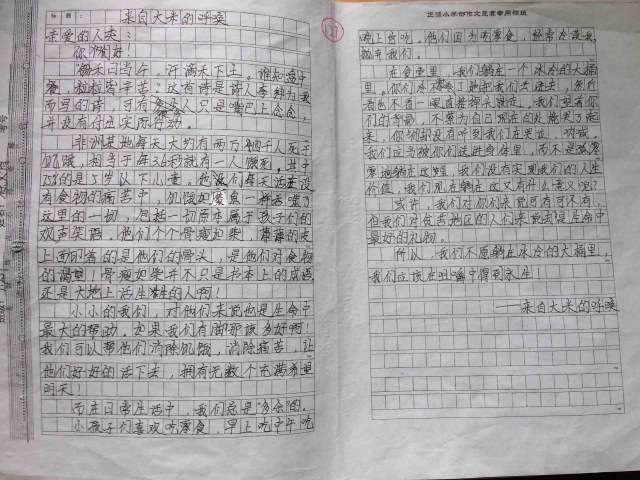 标题：来自大米的呼唤
亲爱的人类：
你们好！
锄禾日当午，汗滴禾下土。谁知盘中
餐，粒粒皆辛苦。这首诗是诗人李绅为我
而写的诗，可有些人只是嘴巴上念念，
并没有付出实际行动。
非洲某地每天大约有两万四千人死于
饥饿，相当于每3.6秒就有一人饿死，其中
75%的是5岁以下儿童。他们每天活在没
有食物的痛苦中，饥饿如魔鬼一样吞噬了
这里的一切，包括一切原本属于孩子们的
欢声笑语。他们个个骨瘦如柴，薄薄的皮
上面印着的是他们的骨头，是他们对食物
的渴望！骨瘦如柴并不只是书本上的成语，
还是大地上活生生的人啊！
小小的我们，对他们来说也是生命中
最大的帮助，如果我们有脚那该多好啊！
我们可以帮他们消除饥饿，消除痛苦，让
他们好好的活下去，拥有无数个充满希望
明天！
而在日常生活中，我们总是“多余”的。
小孩子们喜欢吃零食，早上吃中午吃
127
晚上也吃，他们因为吃零食，经常冷落我，
抛弃我们。
在食堂里，我们躺在一个冰冷的大桶
里。你们把我们丢进去，然后
看也不看一眼直接掉头就走。我们望着你
们的背影，不禁为自己现在的处境哭了起
来，你们却没有听到我们在哭泣、呐喊。
我们应当被你们送进身体里，而不是孤零
零地躺在这里，我们没有实现我们的人生
价值，我们现在躺在这又有什么意义呢？
或许，我们对你们来说可有可无，
但我们对贫苦地区的人们来说却是生命中
最好的礼物。
所以，我们不愿躺在冰冷的大桶里，
我们应该在咀嚼中得到永生！
——来自大米的呼唤